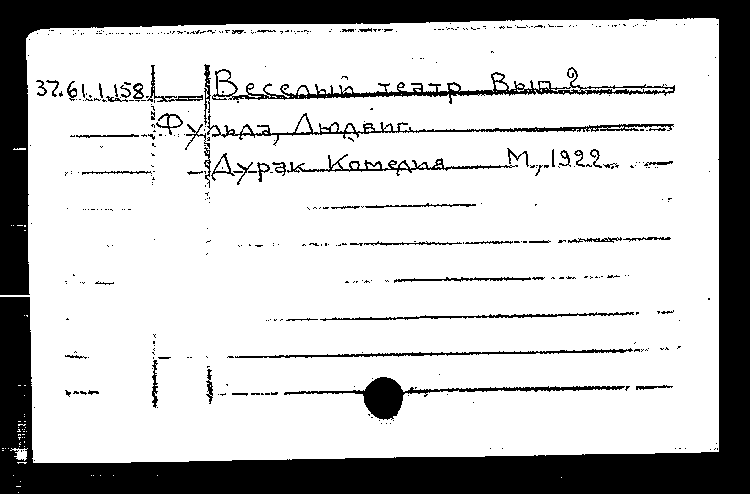 37.61.1.158 Веселый театр Вып 2
Фульда, Людвиг.
Дурак Комедия М, 1922